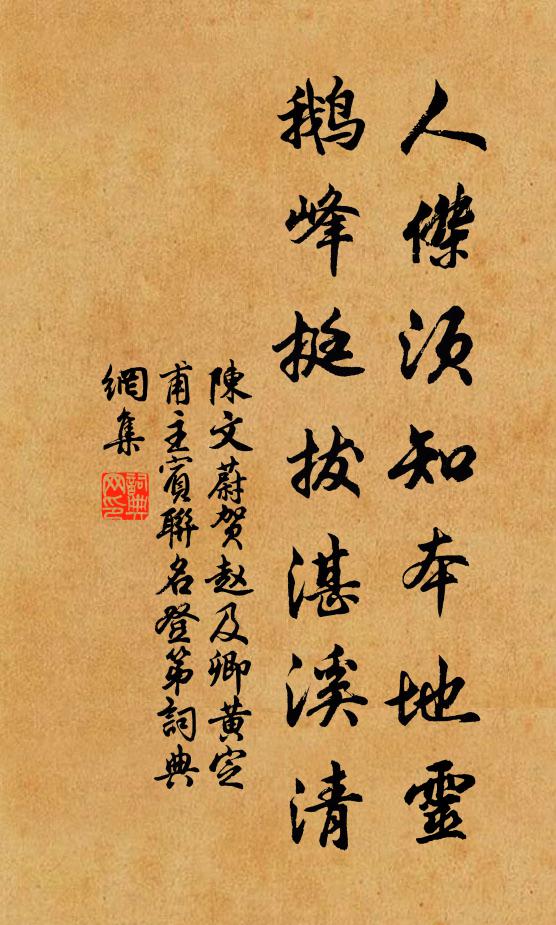 人傑須知本地靈
鹅峰挺拔湛溪清
陳文蔚贺赵及卿黄定
甫主賓聯名登第詞典
網集
詞典
网印